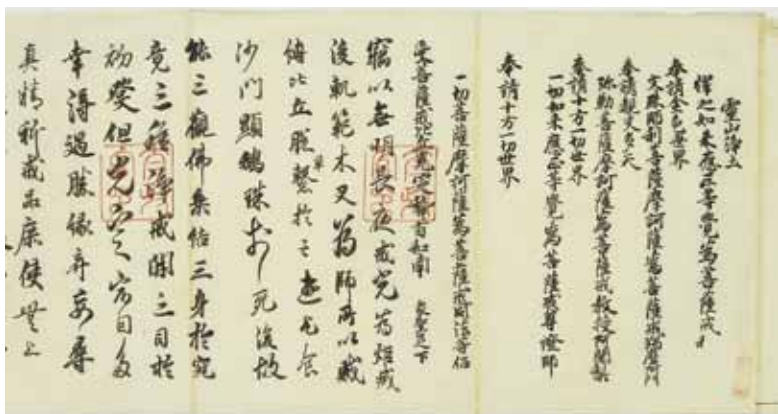 霊山浄土
釋迦如来應正等覺為菩薩戒和
奉請金色世界
文殊師利菩薩摩訶薩為菩薩戒羯磨阿
奉請覩史多天
弥勒菩薩摩訶薩為菩薩戒教授阿闍梨
奉請十方一切世界
一切如来應正等覺為菩薩戒尊證師
奉請十方一切世界
一切菩薩摩訶薩為菩薩戒同法等侶
受菩薩戒比丘光定稽首和南 衆聖足下
竊以無明長夜戒光為炬或
後軌範木叉為師所以賊
縛比丘脱草繋於王遊乞食
沙門顯鵝珠於死後故
能三觀佛乘結三身於究
竟三種淨戒開三目於
初發但光定宿因多
幸得遇勝縁弃妄尋
真精祈戒品庶使世上